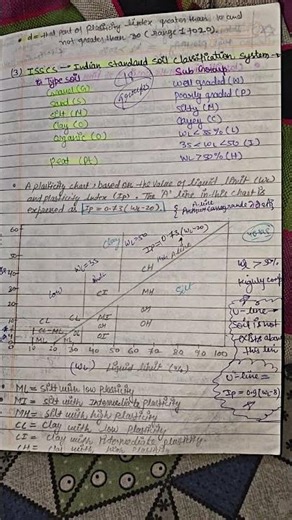 • d = that part of plasticity index greater than 10 and
not greater than 30 (range 1 to 20).
(3) ISSCS → Indian standard soil classification system →
Type soil
Sub Group
Gravel (G)
Well graded (W)
Sand (S)
Poorly graded (P)
Silt (M)
Silty (M)
Clay (C)
Clayey (C)
Organic (O)
WL < 35% (L)
35 < WL < 50 (I)
Peat (Pt)
WL > 50% (H)
• A plasticity chart, based on the value of liquid limit (WL)
and plasticity index (Ip), The 'A' line in this chart is
expressed as Ip = 0.73 (WL-20).
A-line
60
50
WL=35
WL=50
Ip = 0.73 (WL-20)
CH
CI
MH
Silt
CL
CL
MI
OH
CL-ML
ML
ML
OI
0 10 20 30 40 50 60 70 80 90 100
(WL) Liquid limit (%)
Highly com
U-line
Soil is not
exists above
this line
U-line =
Ip = 0.9 (WL-8)
• ML = Silt with low plasticity
• MI = Silt with Intermediate plasticity
• MH = Silt with high plasticity
• CL = Clay with low plasticity
• CI = Clay with intermediate plasticity
• CH = Clay with high plasticity